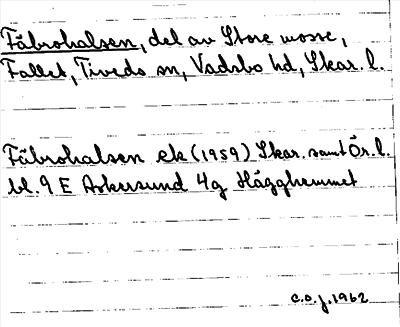 Fäbrohalsen, del av Store mosse,
Fallet, Tiveds sn, Vadsbo hd, Skar. l.
Fäbrohalsen ek (1959) Skar. samt Ör. l.
bl. 9 E Askersund 4g Häggehemmet
C.O.J. 1962